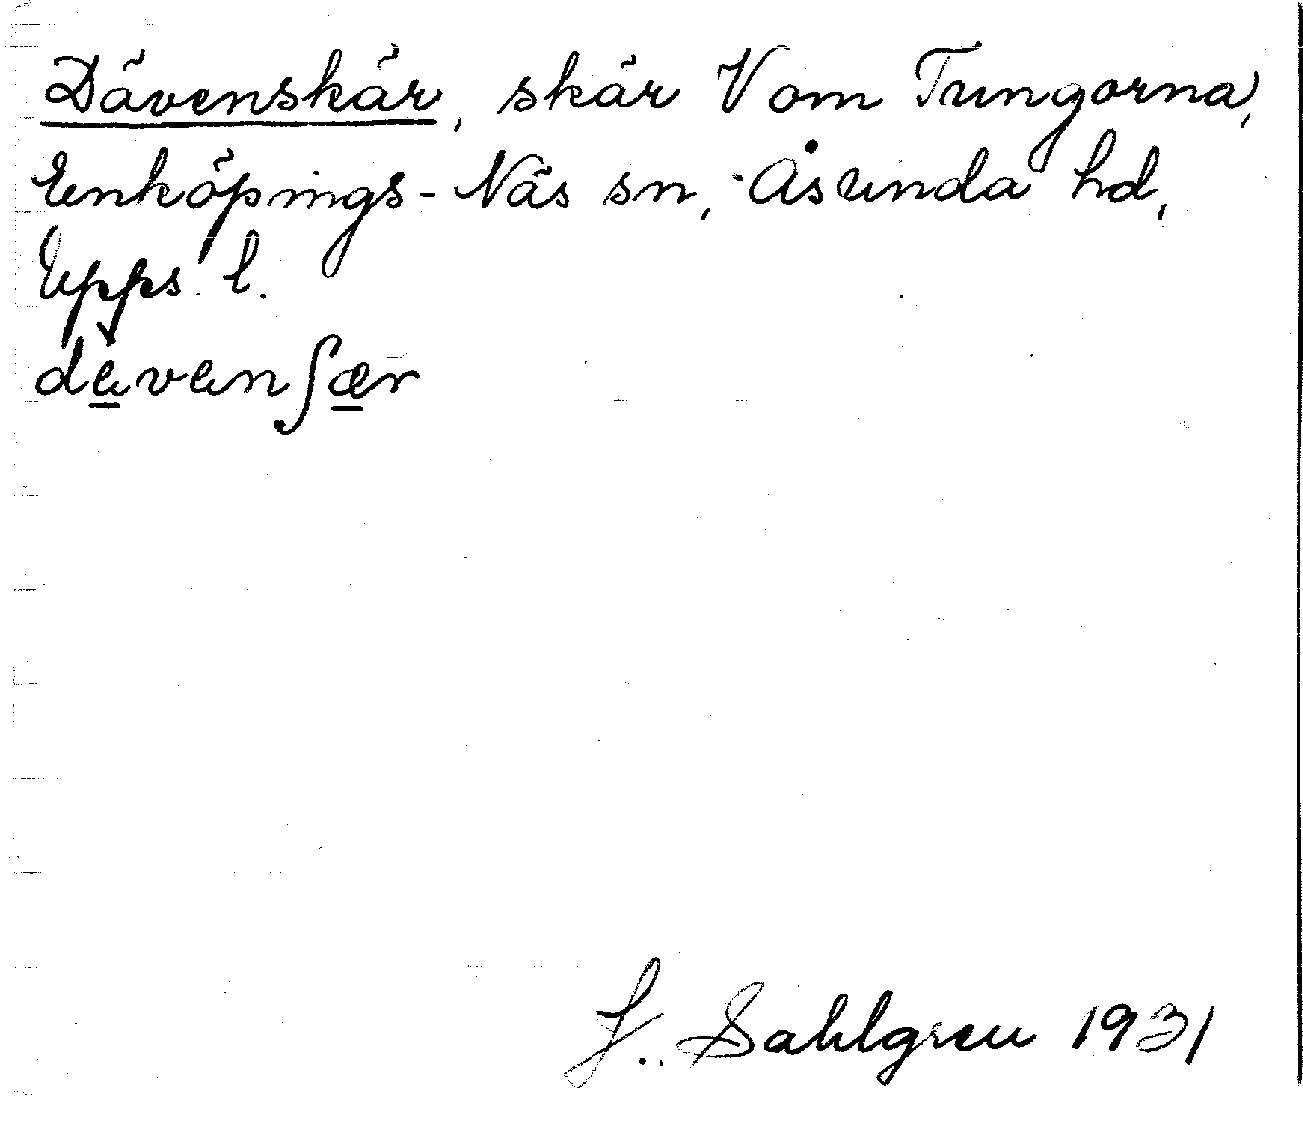 Dävenskär, skär V om Tungorna,
Enköpings-Näs sn, Åsunda hd,
Upps. l.
dèvenʃær
J. Sahlgren 1931